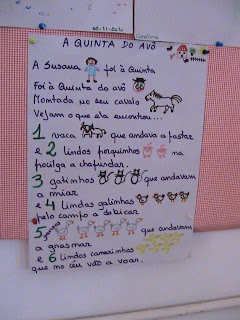 A QUINTA DO AVÔ
A Susana foi à Quinta
Foi à Quinta do avô
Montada no seu cavalo
Vejam o que ela encontrou...
1 vaca que andava a pastar
e 2 lindos porquinhos na
poulga a chafurdar.
3 gatinhos que andavam
a miar
e 4 lindas galinhas
pelo campo a debicar
5 que andavam
a grasnar
e 6 lindos canarinhos
que no céu vão a voar.